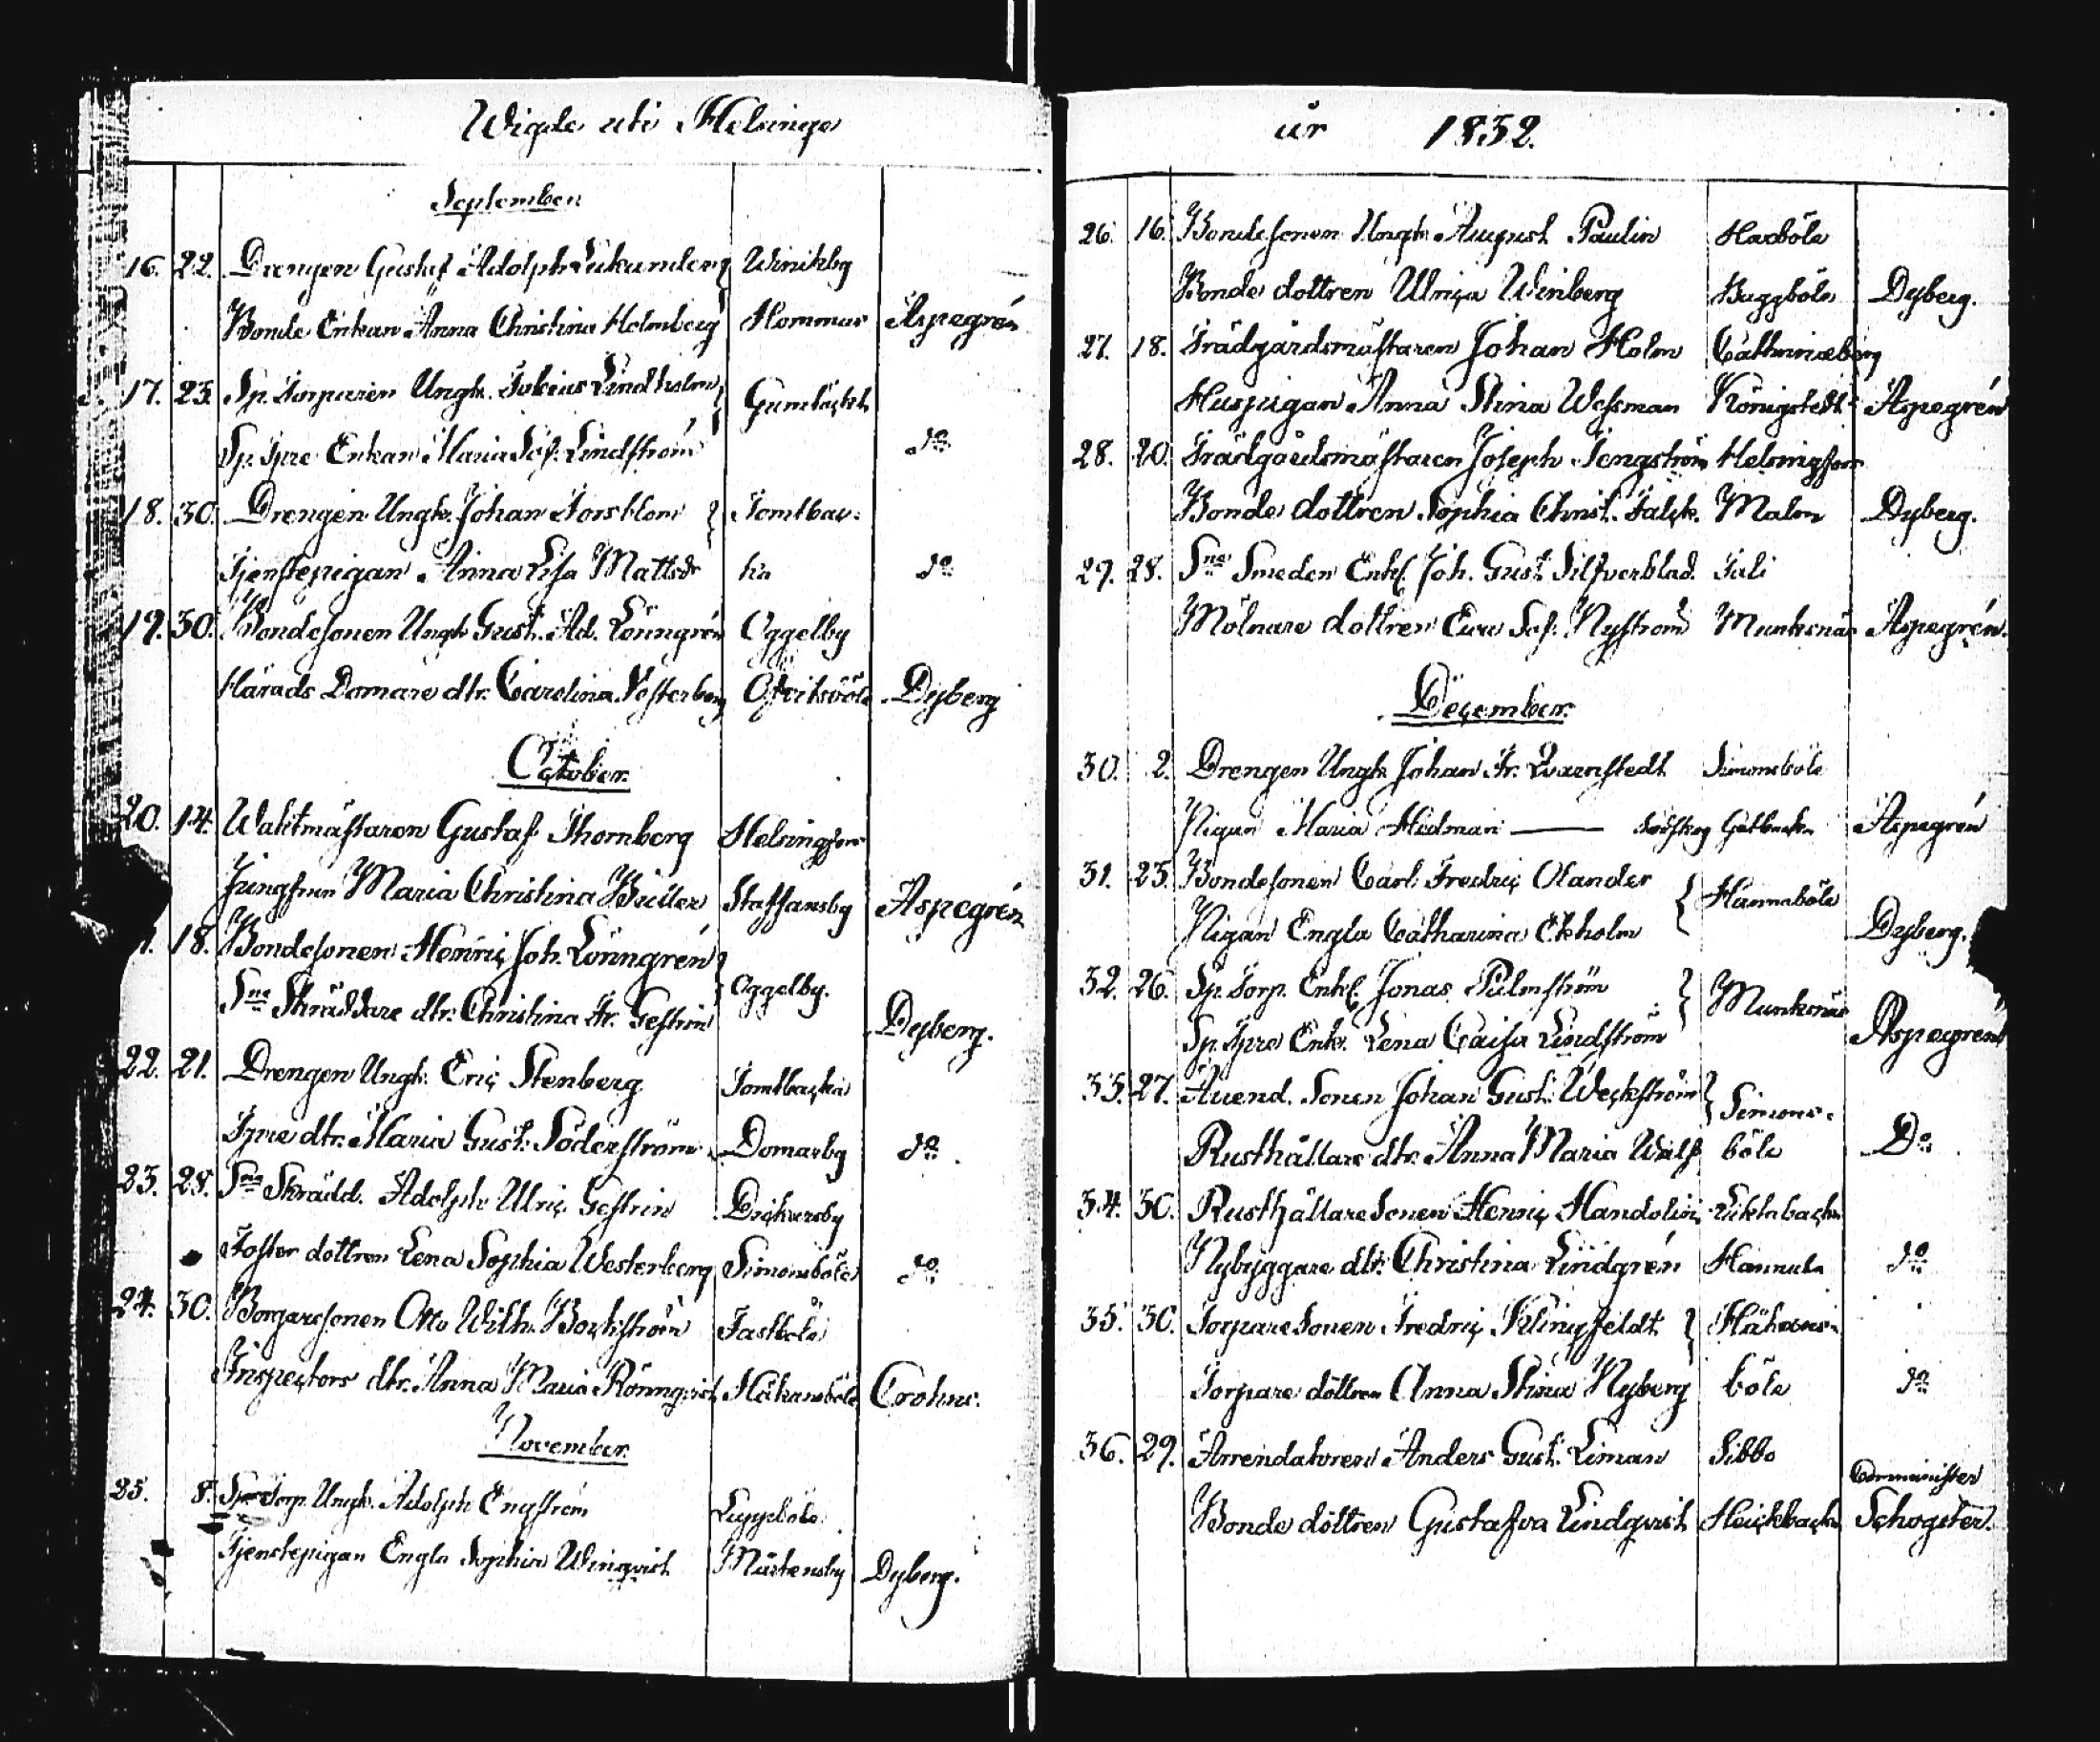 Wigde uti Helsinge
September
16. 22. Drengen Gustaf Adolph Winikby
Bonde Enkan Anna Christina Holmberg Hommas Aspegrén
17. 23. Sp. Torparen Ungk. Tobias Lindholm Gumtäckt
Sp. Tpre Enkan Maria Sof. Lindström do
18. 30. Drengen Ungk. Johan Forsblom Tomtbac-
Tjenstepigan Anna Lisa Mattsdr ka do
19. 30. Bondesonen Ungk. Gust. Ad. Lönngrén Oggelby
Härads Domare dtr. Carolina Öfitsböle Dyberg
October.
20. 14. Waktmästaren Gustaf Thornberg Helsingfors
Jungfrun Maria Christina Staffansby Aspegrén
1. 18. Bondesonen Henric Joh. Lönngrén Oggelby.
Sne Skräddare dtr. Christina Fr. Gestrin Dyberg.
22. 21. Drengen Ungk. Eric Stenberg Tomtbacka
Tpre dtr. Maria Gust. Söderström Domarby do
23. 28. Sne Skrädd. Adolph Ulric Gestrin Dickursby
Foster dottren Lena Sophia Westerberg Simonsböle do
24. 30. Borgaresonen Otto Wilh. Böckström Fastböle
Inspectors dtr. Anna Maria Rönnqvist Håkansböle Crohns.
November.
25. 8. Sp. Torp. Ungk. Adolph Engström
Tjenstepigan Engla Sophia Winqvist Mårtensby Dyberg.
år 1832.
26. 16. Bondesonen Ungk. August Paulin Haxböle
Bonde dottren Ulrica Winberg Biggböle Dyberg.
27. 18. Trädgårdsmästaren Johan Holm Cathrinæberg
Huspigan Anna Stina Wessman Königstedt Aspegrén
28. 20. Trädgårdsmästaren Joseph Tengström Helsingfors
Bonde dottren Sophia Christ. Falck. Malm Dyberg.
29. 28. Sne Smeden Enkl. Joh. Gust. Silfverblad. Tali
Mölnare dottren Eva Sof. Nyström Munksnäs Aspegrén.
December.
30. 2. Drengen Ungk. Johan Fr. Qvarnstedt Simonsböle
Pigan Maria Hedman Aspegrén
31. 23. Bondesonen Carl Fredric Olander Hannaböle
Pigan Engla Catharina Ekholm Dyberg.
32. 26. Sp. Torp. Enkl. Jonas Palmström Munksnäs
Sp. Tpre Enk. Lena Caisa Lindström Aspegrén
33. 27. Auend. Sonen Johan Gust. Weckström Simons-
Rusthållare dtr. Anna Maria Walf böle Do
34. 30. Rusthållare Sonen Henric Mandolin
Nybyggare dtr. Christina Lindgrén Hannula do
35. 30. Torpare Sonen Fredric Klingfeldt Håkans-
Torpare döttren Anna Stina Nyberg böle do
36. 29. Arrendatoren Anders Gust. Liman Sibbo
Comminister
Bonde döttren Gustafva Lindqvist Heickbacka Schogster.